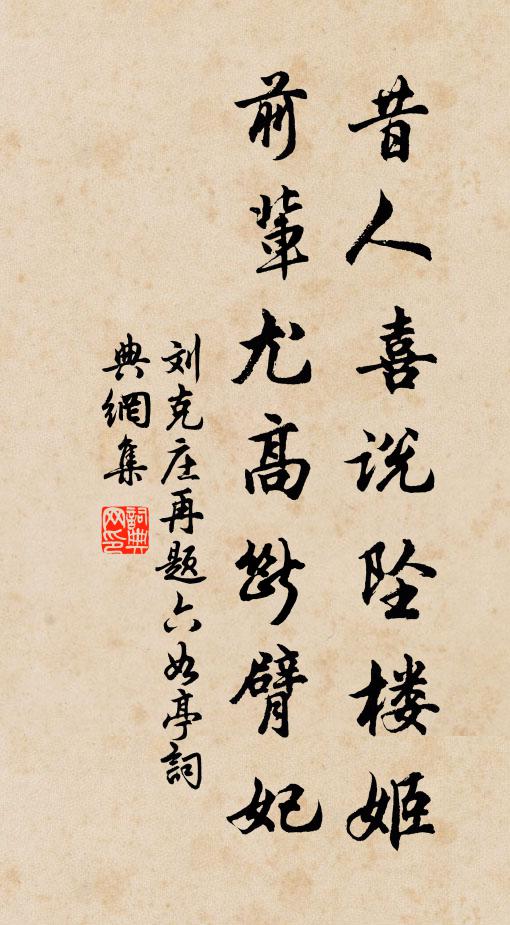 昔人喜说坠楼姬
前辈尤高断臂妃
刘克庄再题六如亭词
典网集
词典网印